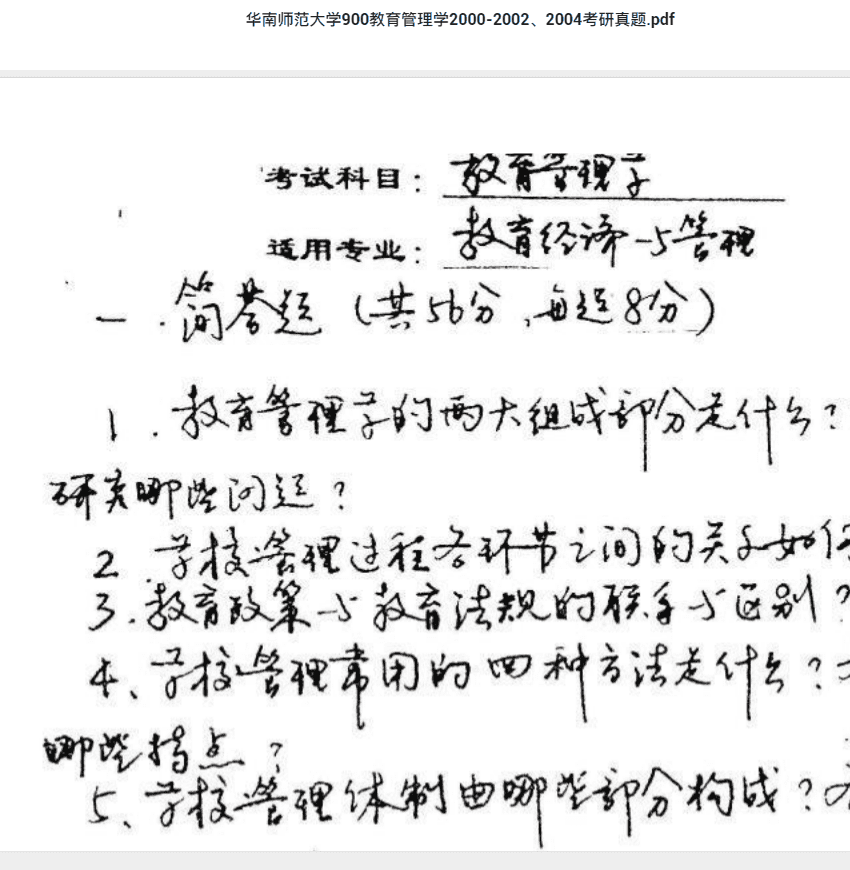 华南师范大学900教育管理学2000-2002、2004考研真题.pdf
考试科目：教育管理学
适用专业：教育经济与管理
一.简答题（共56分，每题8分）
1.教育管理学的两大组成部分是什么？
研究哪些问题？
2.学校管理过程各环节之间的关系如何
3.教育政策与教育法规的联系与区别？
4、学校管理常用的四种方法是什么？
哪些特点？
5、学校管理体制由哪些部分构成？